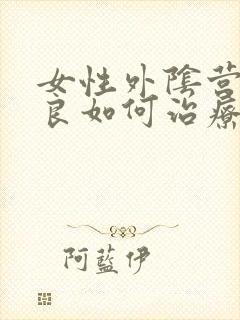 女性外陰营
良如何治療
阿藍伊